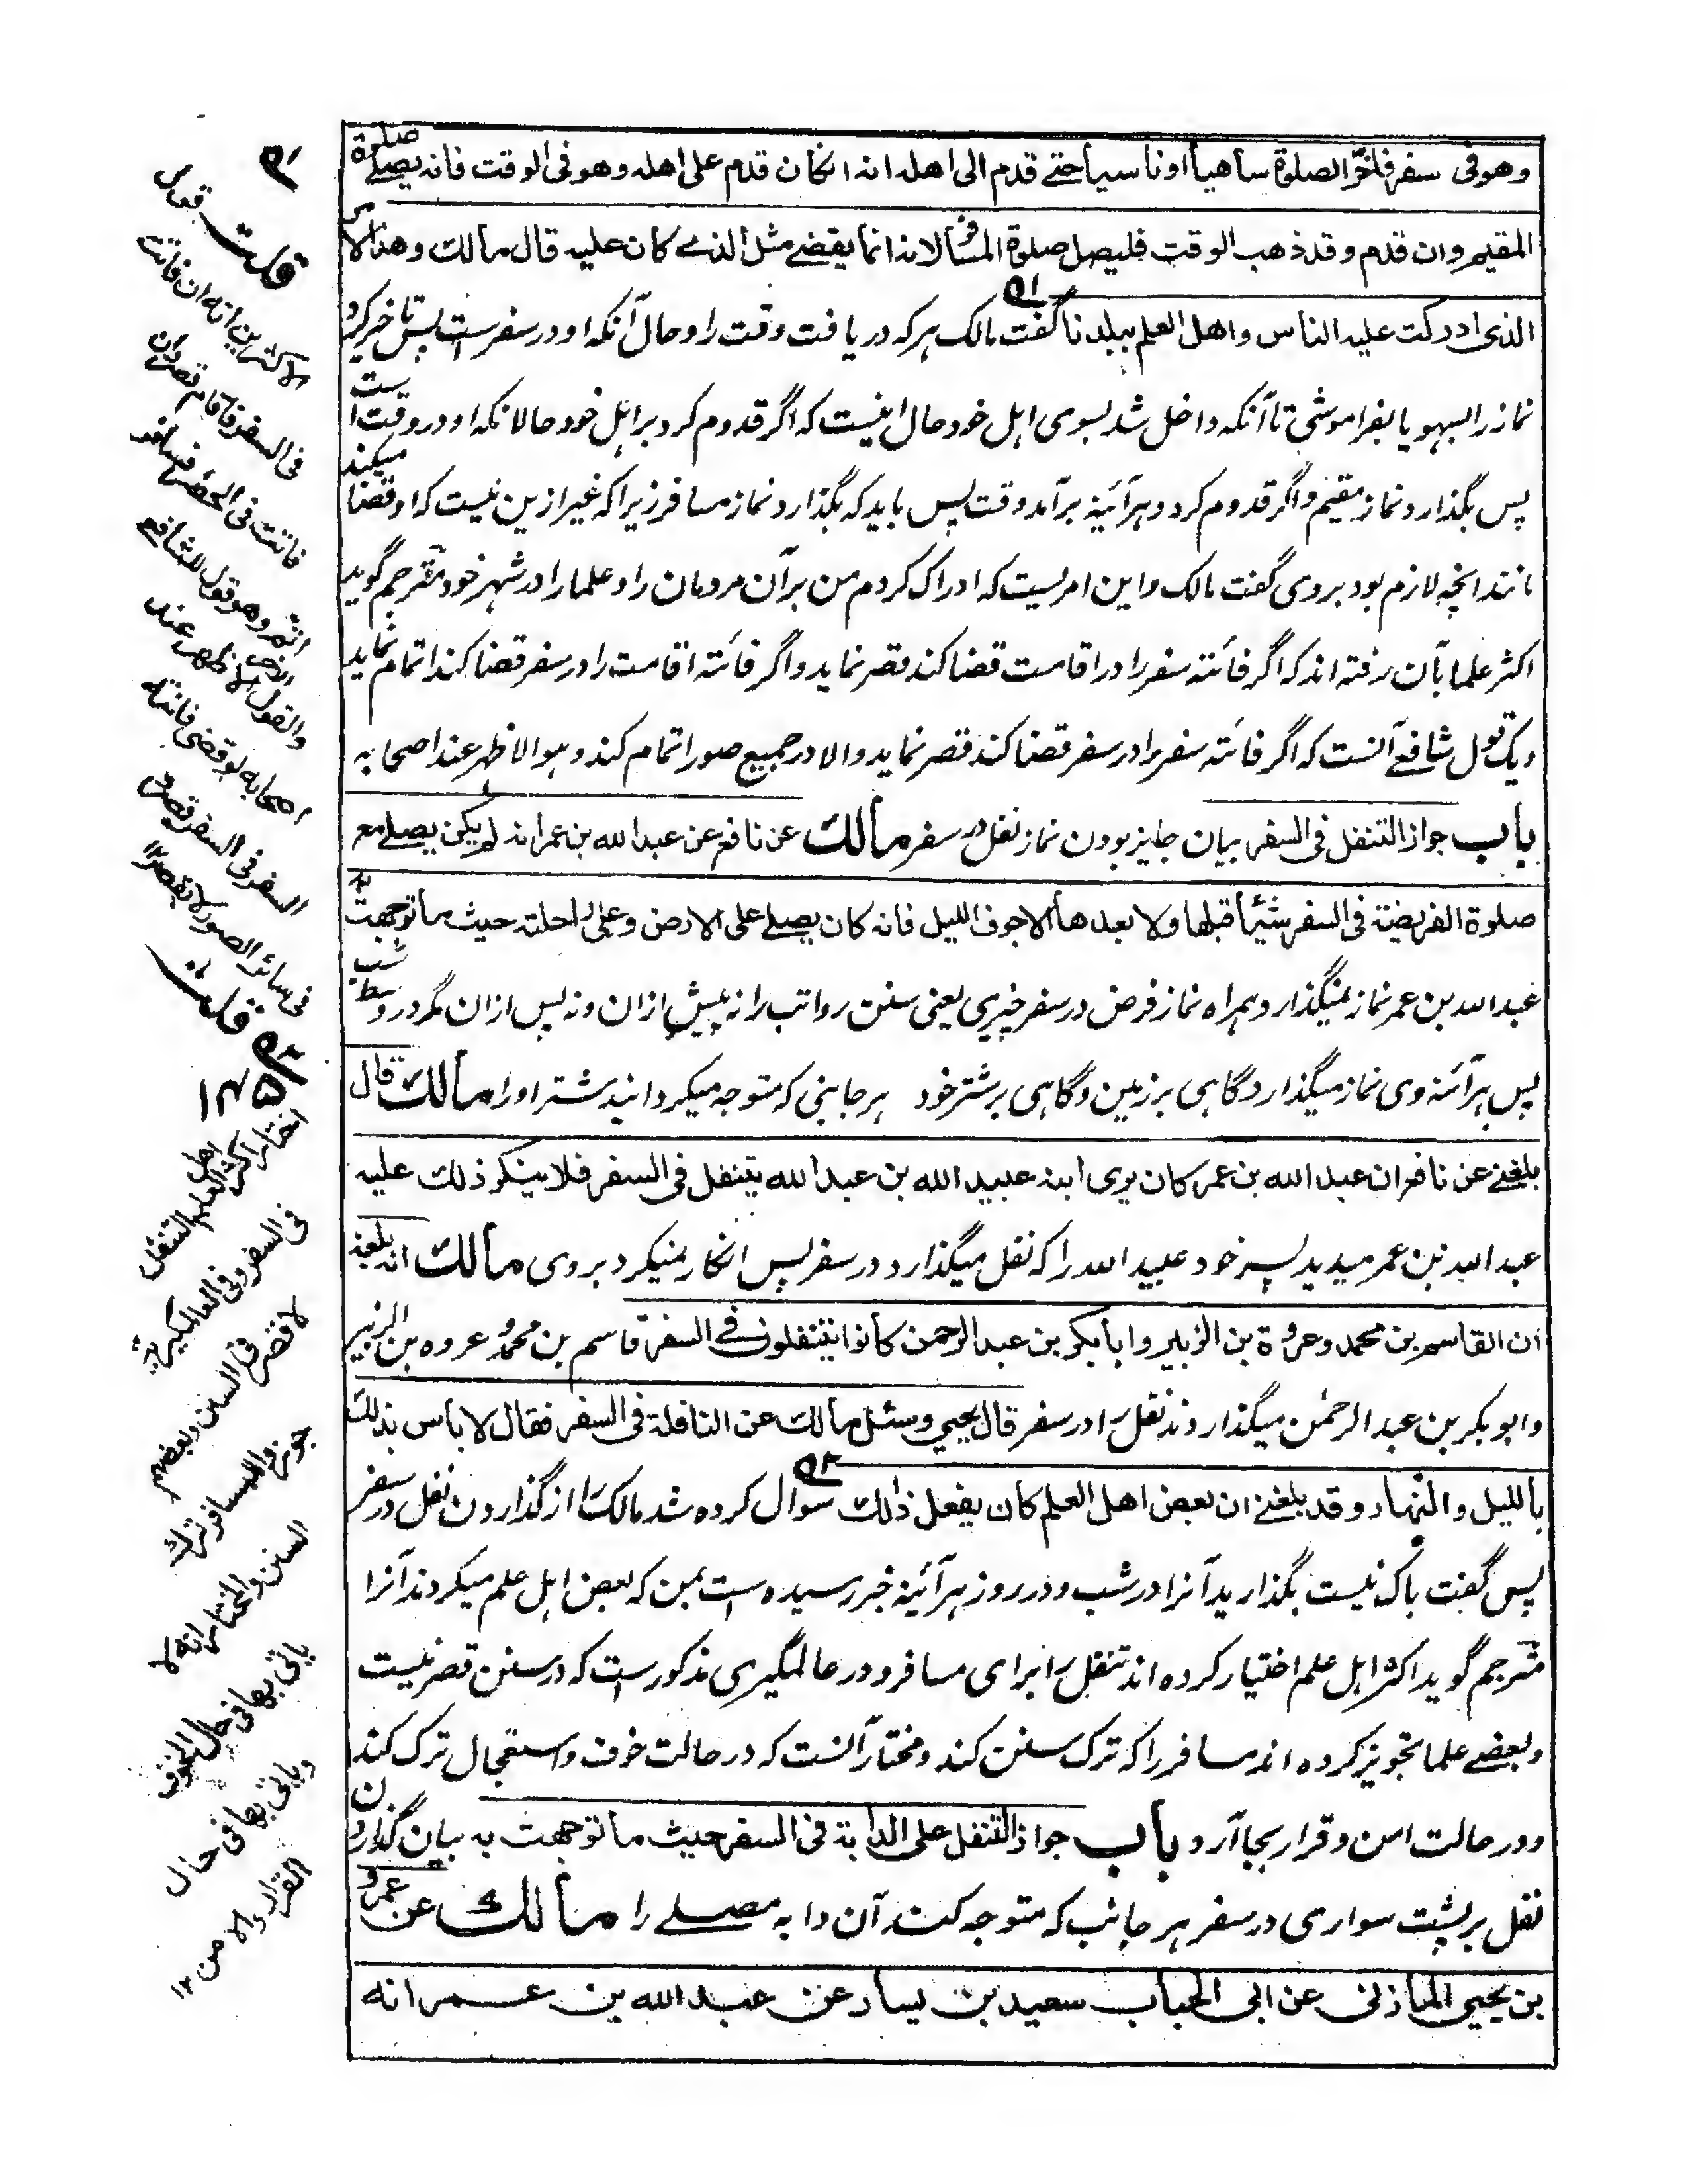 وهو فی سفر فاخّر الصلوة ساهیاً او ناسیاً حتے قدم الی اهله انه انکان قدم علی اهله وهو فی الوقت فانه یصلے صلوة
المقیم وان قدم وقد ذهب الوقت فلیصل صلوة المسافر لانه انما یقضے مثل الذے کان علیه قال مالك وهذا الامر
الذی ادرکت علیه الناس واهل العلم ببلدنا گفت مالک ہرکہ دریافت وقت را و حال آنکہ او در سفرست پس تاخیر کرد
نماز را بسہو یا بفراموشی تا آنکہ داخل شد بسوی اہل خود حال اینست کہ اگر قدوم کرد بر اہل خود حالانکہ او در وقت است
پس بگذارد نماز مقیم و اگر قدوم کرد و ہرآئینہ برآمد وقت پس باید کہ بگذارد نماز مسافر زیرا کہ غیر ازین نیست کہ او قضا میکند
مانند انچہ لازم بود بروی گفت مالک و این امریست کہ ادراک کردم من برآن مردمان را و علما را در شہر خود مترجم گوید
اکثر علما بآن رفتہ اند کہ اگر فائتہ سفر را در اقامت قضا کند قصر نماید و اگر فائتہ اقامت را در سفر قضا کند اتمام نماید
ویک قول شافعے آنست کہ اگر فائتہ سفر را در سفر قضا کند قصر نماید والا در جمیع صور اتمام کند وہو الاظہر عند اصحابہ
باب جواز التنفل فی السفر بیان جایز بودن نماز نفل در سفر مالك عن نافع عن عبد الله بن عمر انه لم یکن یصلے مع
صلوة الفریضة فی السفر شیئاً قبلها ولا بعدها الا جوف اللیل فانه کان یصلے علی الارض وعلی راحلته حیث ما توجهت به
عبد اللہ بن عمر نماز نمیگذارد ہمراہ نماز فرض در سفر چیزی یعنی سنن رواتب را نہ پیش ازان و نہ پس ازان مگر در وسط شب
پس ہرآئنہ وی نماز میگذارد گاہی بر زمین و گاہی بر شتر خود ہر جانبی کہ متوجہ میگردانید شتر او را مالك قال
بلغنے عن نافع ان عبد الله بن عمر کان یری ابنه عبید الله بن عبد الله یتنفل فی السفر فلا ینکر ذلك علیه
عبد اللہ بن عمر میدید پسر خود عبید اللہ را کہ نفل میگذارد در سفر پس انکار نمیکرد بروی مالك انه بلغه
ان القاسم بن محمد وعروة بن الزبیر وابا بکر بن عبد الرحمن کانوا یتنفلون فے السفر قاسم بن محمد و عروہ بن الزبیر
و ابو بکر بن عبد الرحمٰن میگذاردند نفل را در سفر قال یحیی وسئل مالك عن النافلة فی السفر فقال لا باس بذلك
باللیل والنهار وقد بلغنے ان بعض اهل العلم کان یفعل ذلك سوال کردہ شد مالک را از گذاردن نفل در سفر
پس گفت باک نیست بگذارید آنرا در شب و در روز ہرآئینہ خبر رسیدہ است بمن کہ بعض اہل علم میکردند آنرا
مترجم گوید اکثر اہل علم اختیار کردہ اند تنفل را برای مسافر و در عالمگیری مذکورست کہ در سنن قصر نیست
وبعضے علما تجویز کردہ اند مسافر را کہ ترک سنن کند و مختار آنست کہ در حالت خوف و استعجال ترک کند
و در حالت امن و قرار بجا آرد باب جواز التنفل علی الدابة فی السفر حیث ما توجهت به بیان گذاردن
نفل بر پشت سواری در سفر ہر جانب کہ متوجہ کند آن دابہ مصلے را مالك عن عمرو
بن یحیی المازنی عن ابی الحباب سعید بن یسار عن عبد الله بن عمر انه
قلت قول
الاکثرین انه ان فاتت
فی السفر فاقام قصر وان
فاتت فی الحضر فسافر
اتم وهو قول للشافعے
والقول الاخر الاظهر عند
اصحابه لو قضی فائتة
السفر فی السفر قصر و
فی سائر الصور لا یقصر ۱۲
قلت
اختار اکثر اهل العلم التنفل
فی السفر وفی العالمگیریة
لا قصر فی السنن وبعضهم
جوزوا للمسافر ترك
السنن والمختار انه لا
یاتی بها فی حال الخوف
ویاتی بها فی حال
القرار والامن ۱۲